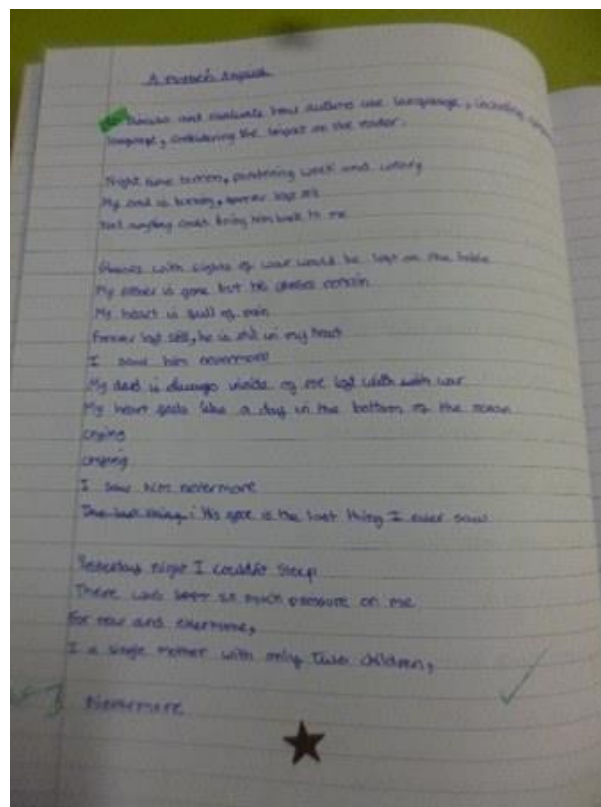 discuss and evaluate how authors use language, including
language, considering the impact on the reader.
Night time terrors, pondering weak and weary
My soul is, forever lost
Not anything could bring him back to me
with sights of war would be left on the table
My is gone but his glasses remain
My heart is full of pain
Forever lost still, he is still in my heart
I saw him nevermore
My dad is always inside of me lost with with war
My heart feels like a dog in the bottom of the ocean
crying
crying
I saw him nevermore
The last thing: His face is the last thing I ever saw
Yesterday night I couldn't sleep
There was so much pressure on me
For now and evermore,
I a single mother with only two children,
Nevermore